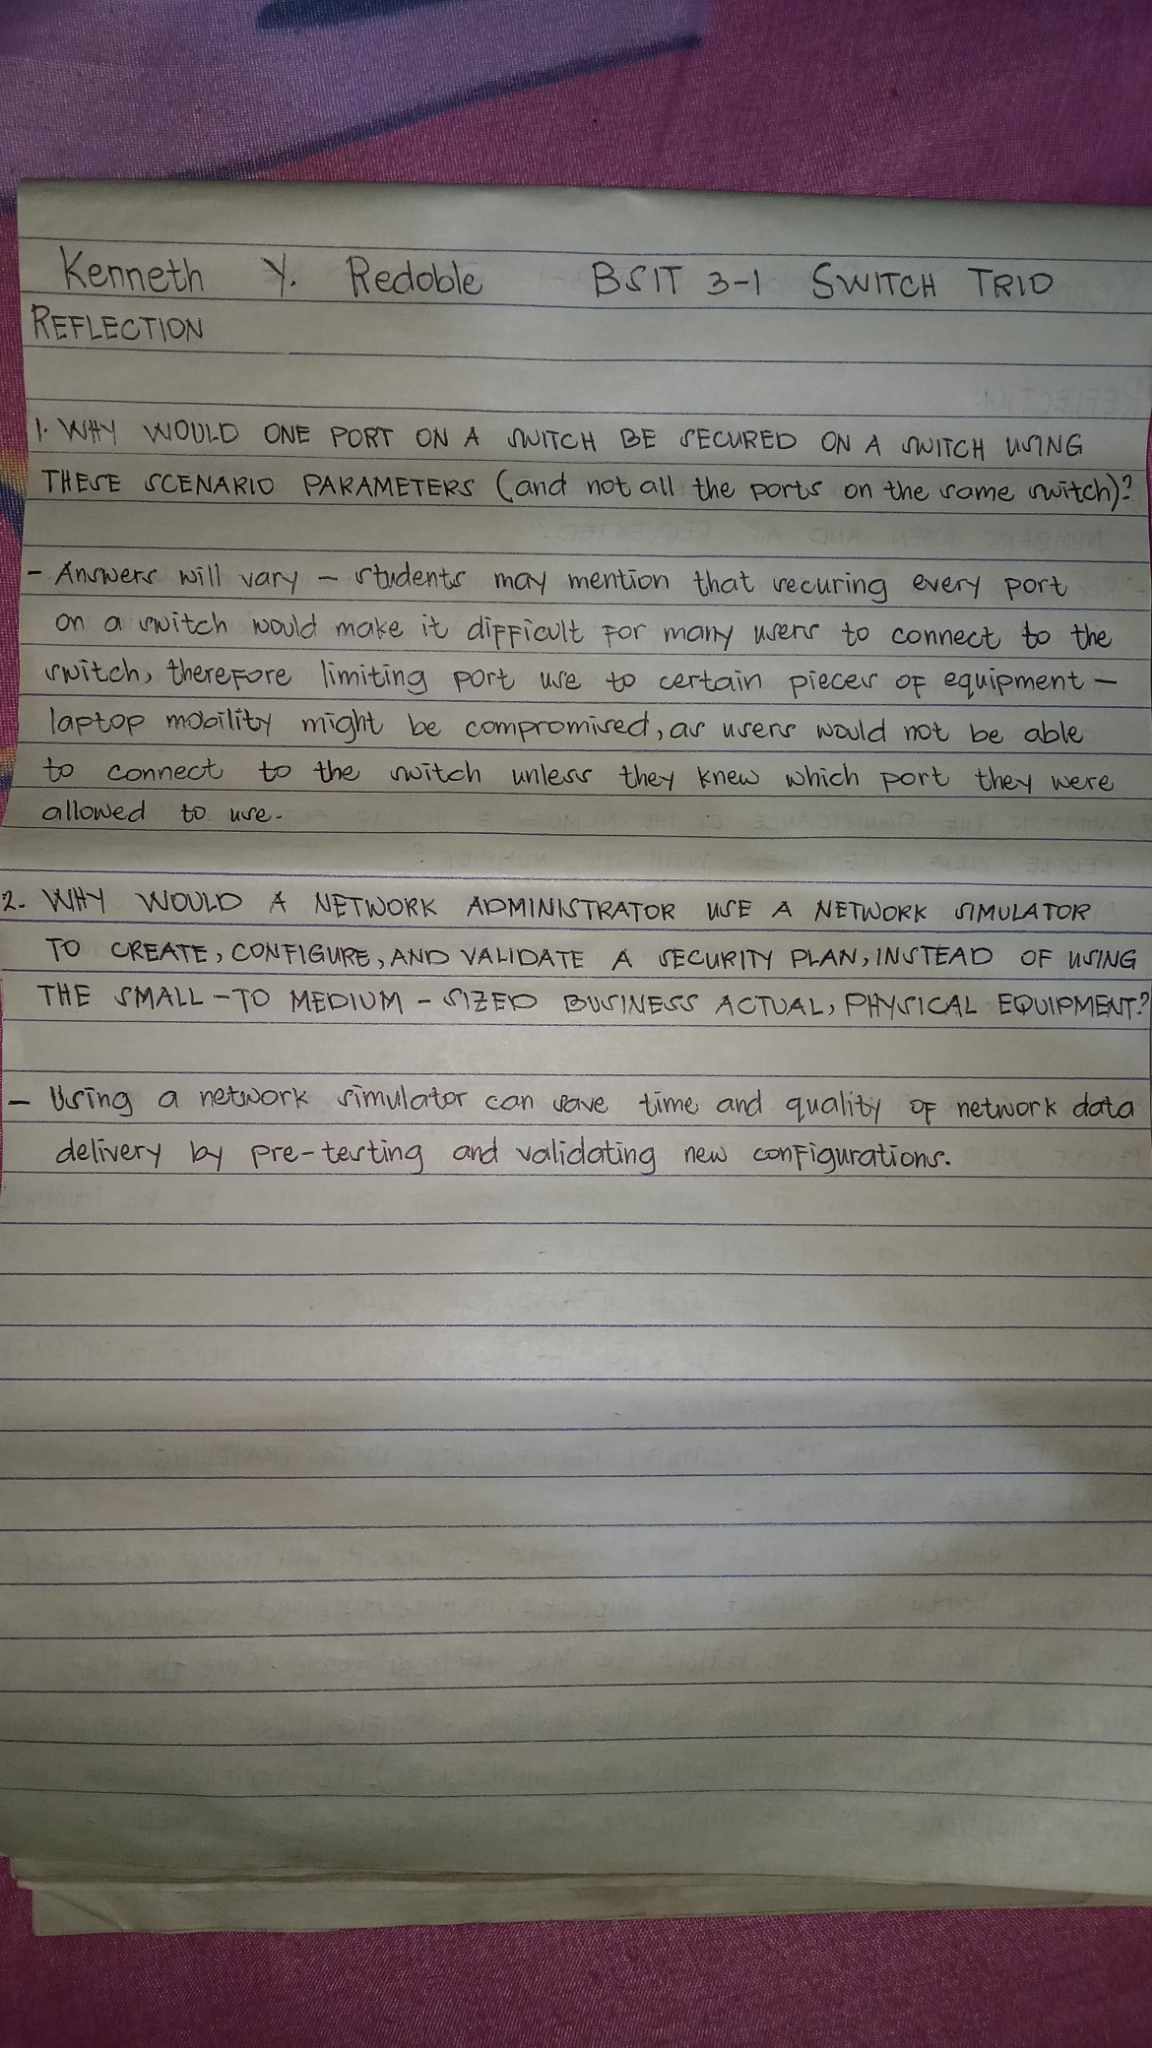 Kenneth Y. Redoble BSIT 3-1 SWITCH TRIO
REFLECTION
1. WHY WOULD ONE PORT ON A SWITCH BE SECURED ON A SWITCH USING
THESE SCENARIO PARAMETERS (and not all the ports on the same switch)?
- Answers will vary - students may mention that securing every port
on a switch would make it difficult for many users to connect to the
switch, therefore limiting port use to certain pieces of equipment -
laptop mobility might be compromised, as users would not be able
to connect to the switch unless they knew which port they were
allowed to use.
2. WHY WOULD A NETWORK ADMINISTRATOR USE A NETWORK SIMULATOR
TO CREATE, CONFIGURE, AND VALIDATE A SECURITY PLAN, INSTEAD OF USING
THE SMALL-TO MEDIUM-SIZED BUSINESS ACTUAL, PHYSICAL EQUIPMENT?
- Using a network simulator can save time and quality of network data
delivery by pre-testing and validating new configurations.